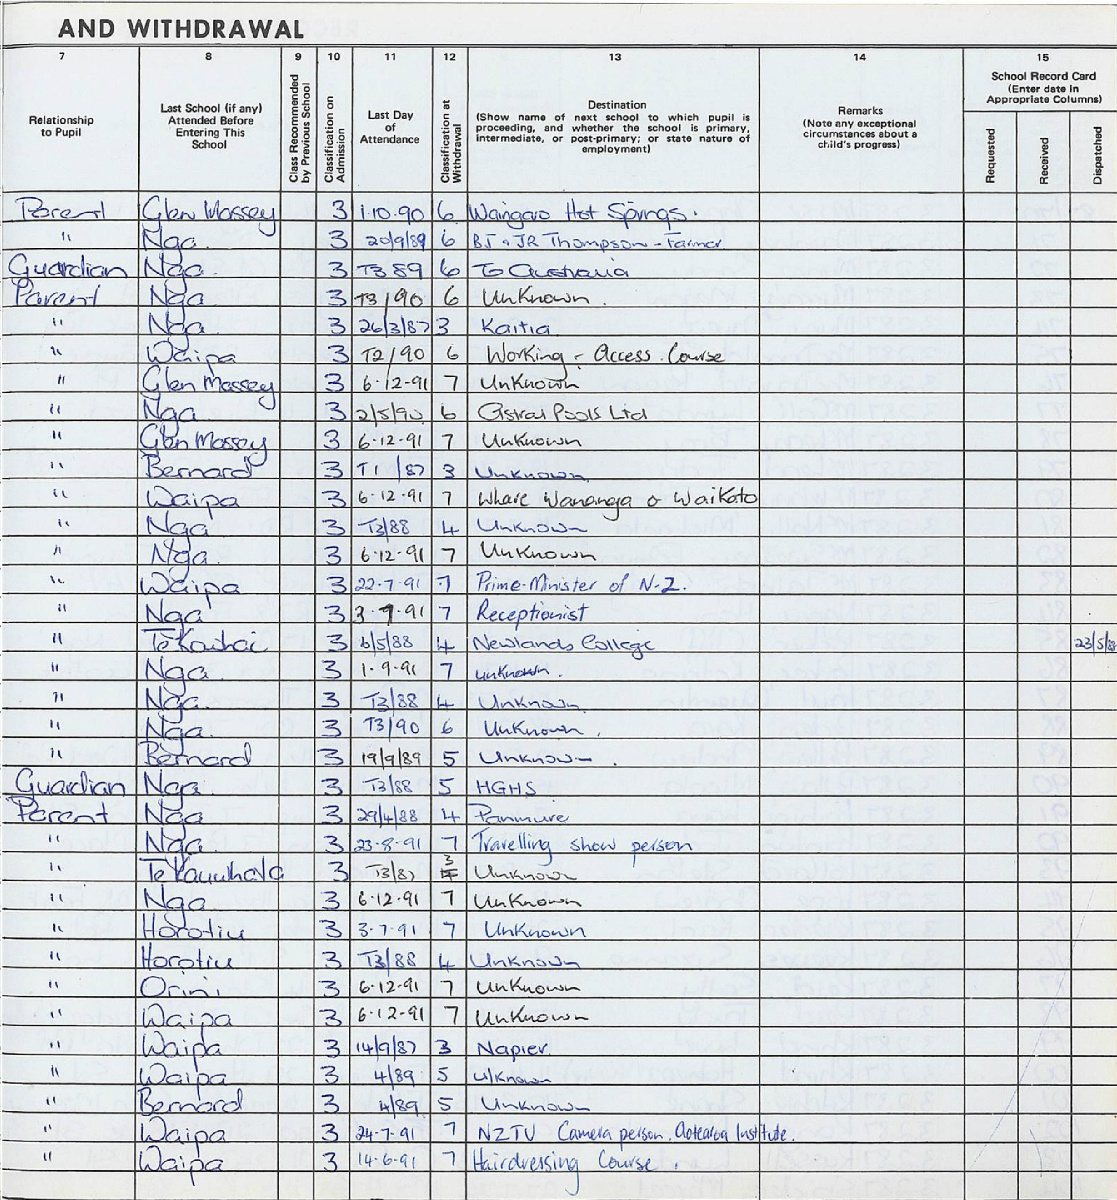 AND WITHDRAWAL
7 8 9 10 11 12 13 14 15
Relationship to Pupil
Last School (if any) Attended Before Entering This School
Class Recommended by Previous School
Classification on Admission
Last Day of Attendance
Classification at Withdrawal
Destination
(Show name of next school to which pupil is proceeding, and whether the school is primary, intermediate, or post-primary; or state nature of employment)
Remarks
(Note any exceptional circumstances about a child's progress)
School Record Card
(Enter date in Appropriate Columns)
Requested
Received
Dispatched
Parent Glen Massey 3 1·10·90 6 Waingaro Hot Springs.
" Nga. 3 20/9/89 6 BJ & JR Thompson - Farmer
Guardian Nga. 3 T3 89 6 To Australia
Parent Nga 3 T3/90 6 Unknown.
" Nga 3 26/3/87 3 Kaitia.
" Waipa 3 T2/90 6 Working - Access. Course
" Glen Massey 3 6·12·91 7 Unknown
" Nga. 3 2/5/90 6 Astral Pools Ltd
" Glen Massey 3 6·12·91 7 Unknown
" Bernard 3 T1/87 3 Unknown
" Waipa 3 6·12·91 7 Whare Wananga o Waikato
" Nga. 3 T3/88 4 Unknown
" Nga. 3 6·12·91 7 Unknown
" Waipa 3 22·7·91 7 Prime-Minister of N-Z.
" Nga 3 3-9-91 7 Receptionist
" Te Kowhai 3 6/5/88 4 Newlands College 23/5/88
" Nga. 3 1·9·91 7 unknown.
" Nga. 3 T3/88 4 Unknown.
" Nga. 3 T3/90 6 Unknown.
" Bernard 3 19/9/89 5 Unknown.
Guardian Nga. 3 T3/88 5 HGHS
Parent Nga 3 29/4/88 4 Panmure
" Nga 3 23·8·91 7 Travelling show person
" Te Kauwhata 3 T3/87 3 Unknown
" Nga. 3 6·12·91 7 Unknown
" Horotiu 3 3·7·91 7 Unknown
" Horotiu 3 T3/88 4 Unknown
" Orini. 3 6·12·91 7 Unknown
" Waipa 3 6·12·91 7 Unknown
" Waipa 3 14/9/87 3 Napier.
" Waipa 3 4/89 5 u/known
" Bernard 3 4/89 5 Unknown
" Waipa 3 24·7·91 7 NZTV Camera person. Aotearoa Institute.
" Waipa 3 14·6·91 7 Hairdressing Course.